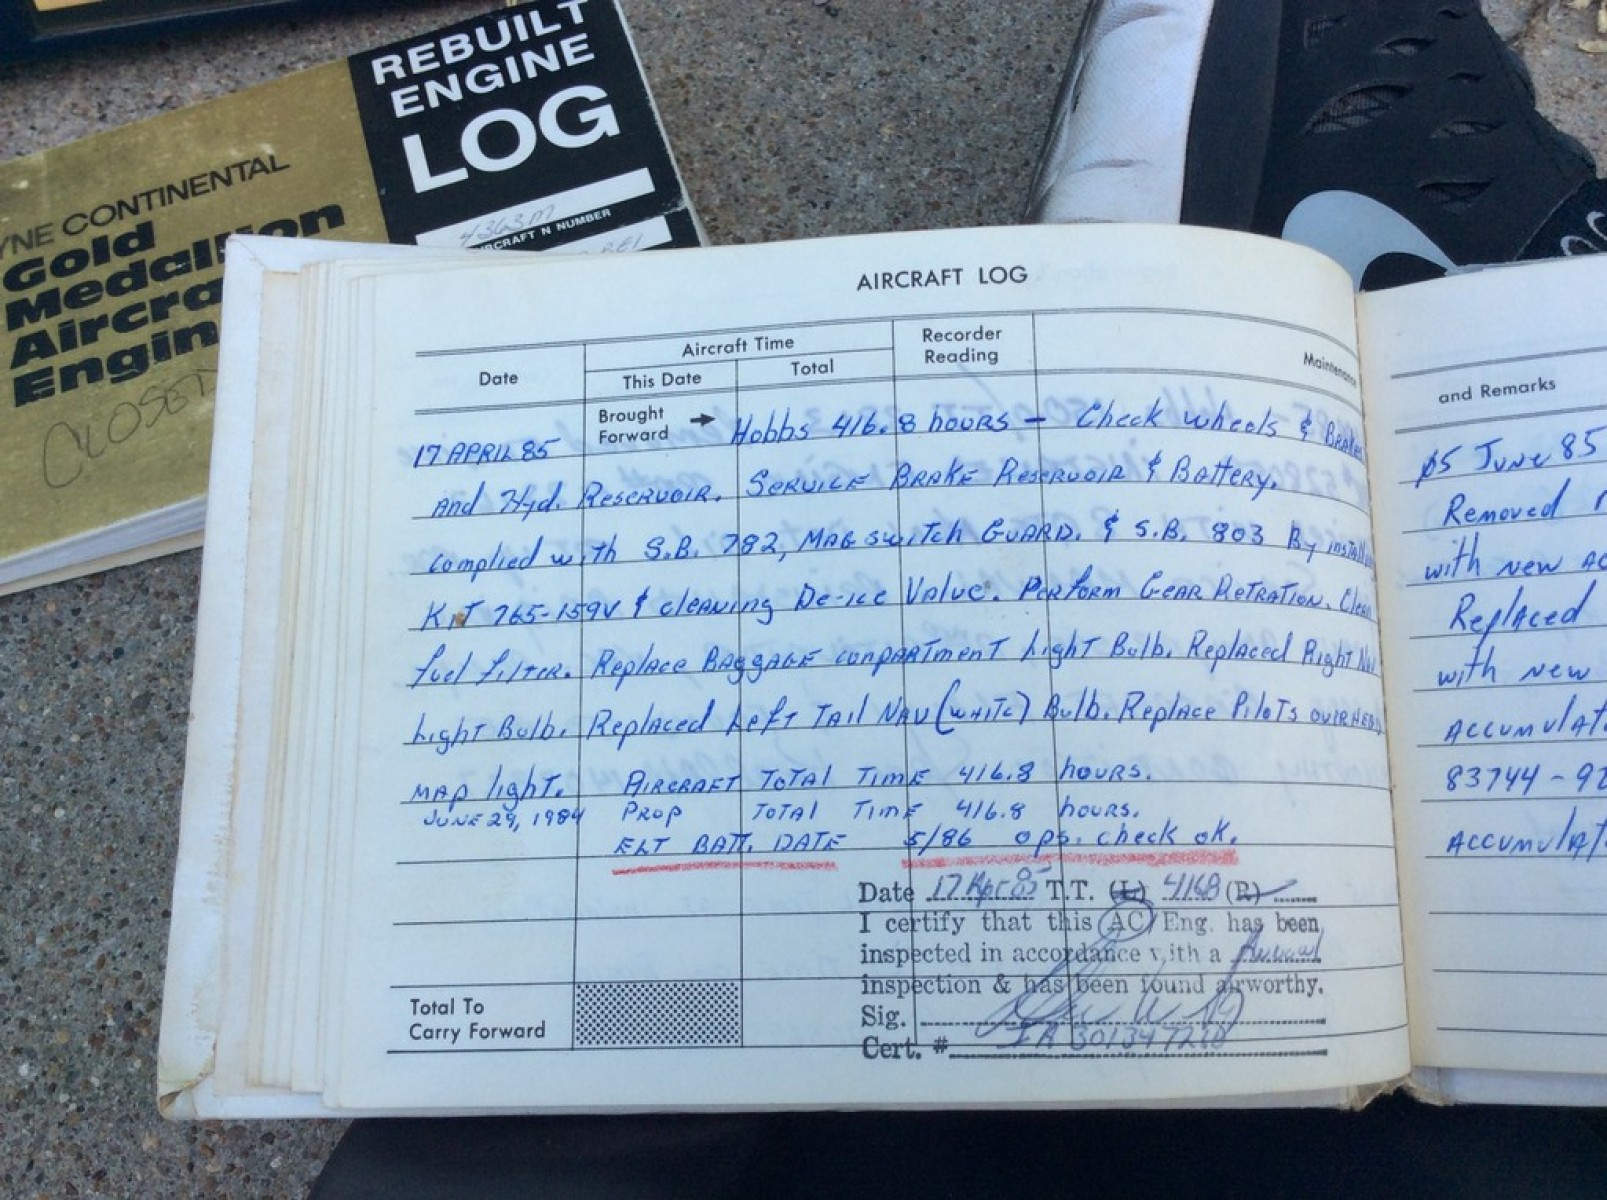 REBUILT
ENGINE
LOG
4363M
AIRCRAFT N NUMBER
YNE CONTINENTAL
Gold
Medallion
Aircra
Engin
AIRCRAFT LOG
Date
Aircraft Time
This Date
Total
Recorder
Reading
Maintenance
Brought
Forward
17 APRIL 85 Hobbs 416.8 hours - Check wheels & Brakes
and Hyd. Reservoir. Service Brake Reservoir & Battery.
complied with S.B. 782, Mag switch Guard. & S.B. 803 By install
Kit 765-159V & cleaning De-ice Valve. Perform Gear Retration. Clean
fuel filter. Replace Baggage conpartment Light Bulb. Replaced Right Nav
Light Bulb. Replaced Left Tail Nav (white) Bulb. Replace Pilots overhead
map light. Aircraft Total Time 416.8 hours.
JUNE 29, 1984 Prop Total Time 416.8 hours.
ELT BATT. DATE 5/86 ops. check ok.
Date 17 Apr 85 T.T. (L) 416.8 (R)
I certify that this AC Eng. has been
inspected in accordance with a Annual
inspection & has been found airworthy.
Sig.
Cert. # IA 301347280
Total To
Carry Forward
and Remarks
05 June 85
Removed
with new
Replaced
with new
Accumulat
83744-92
Accumulat